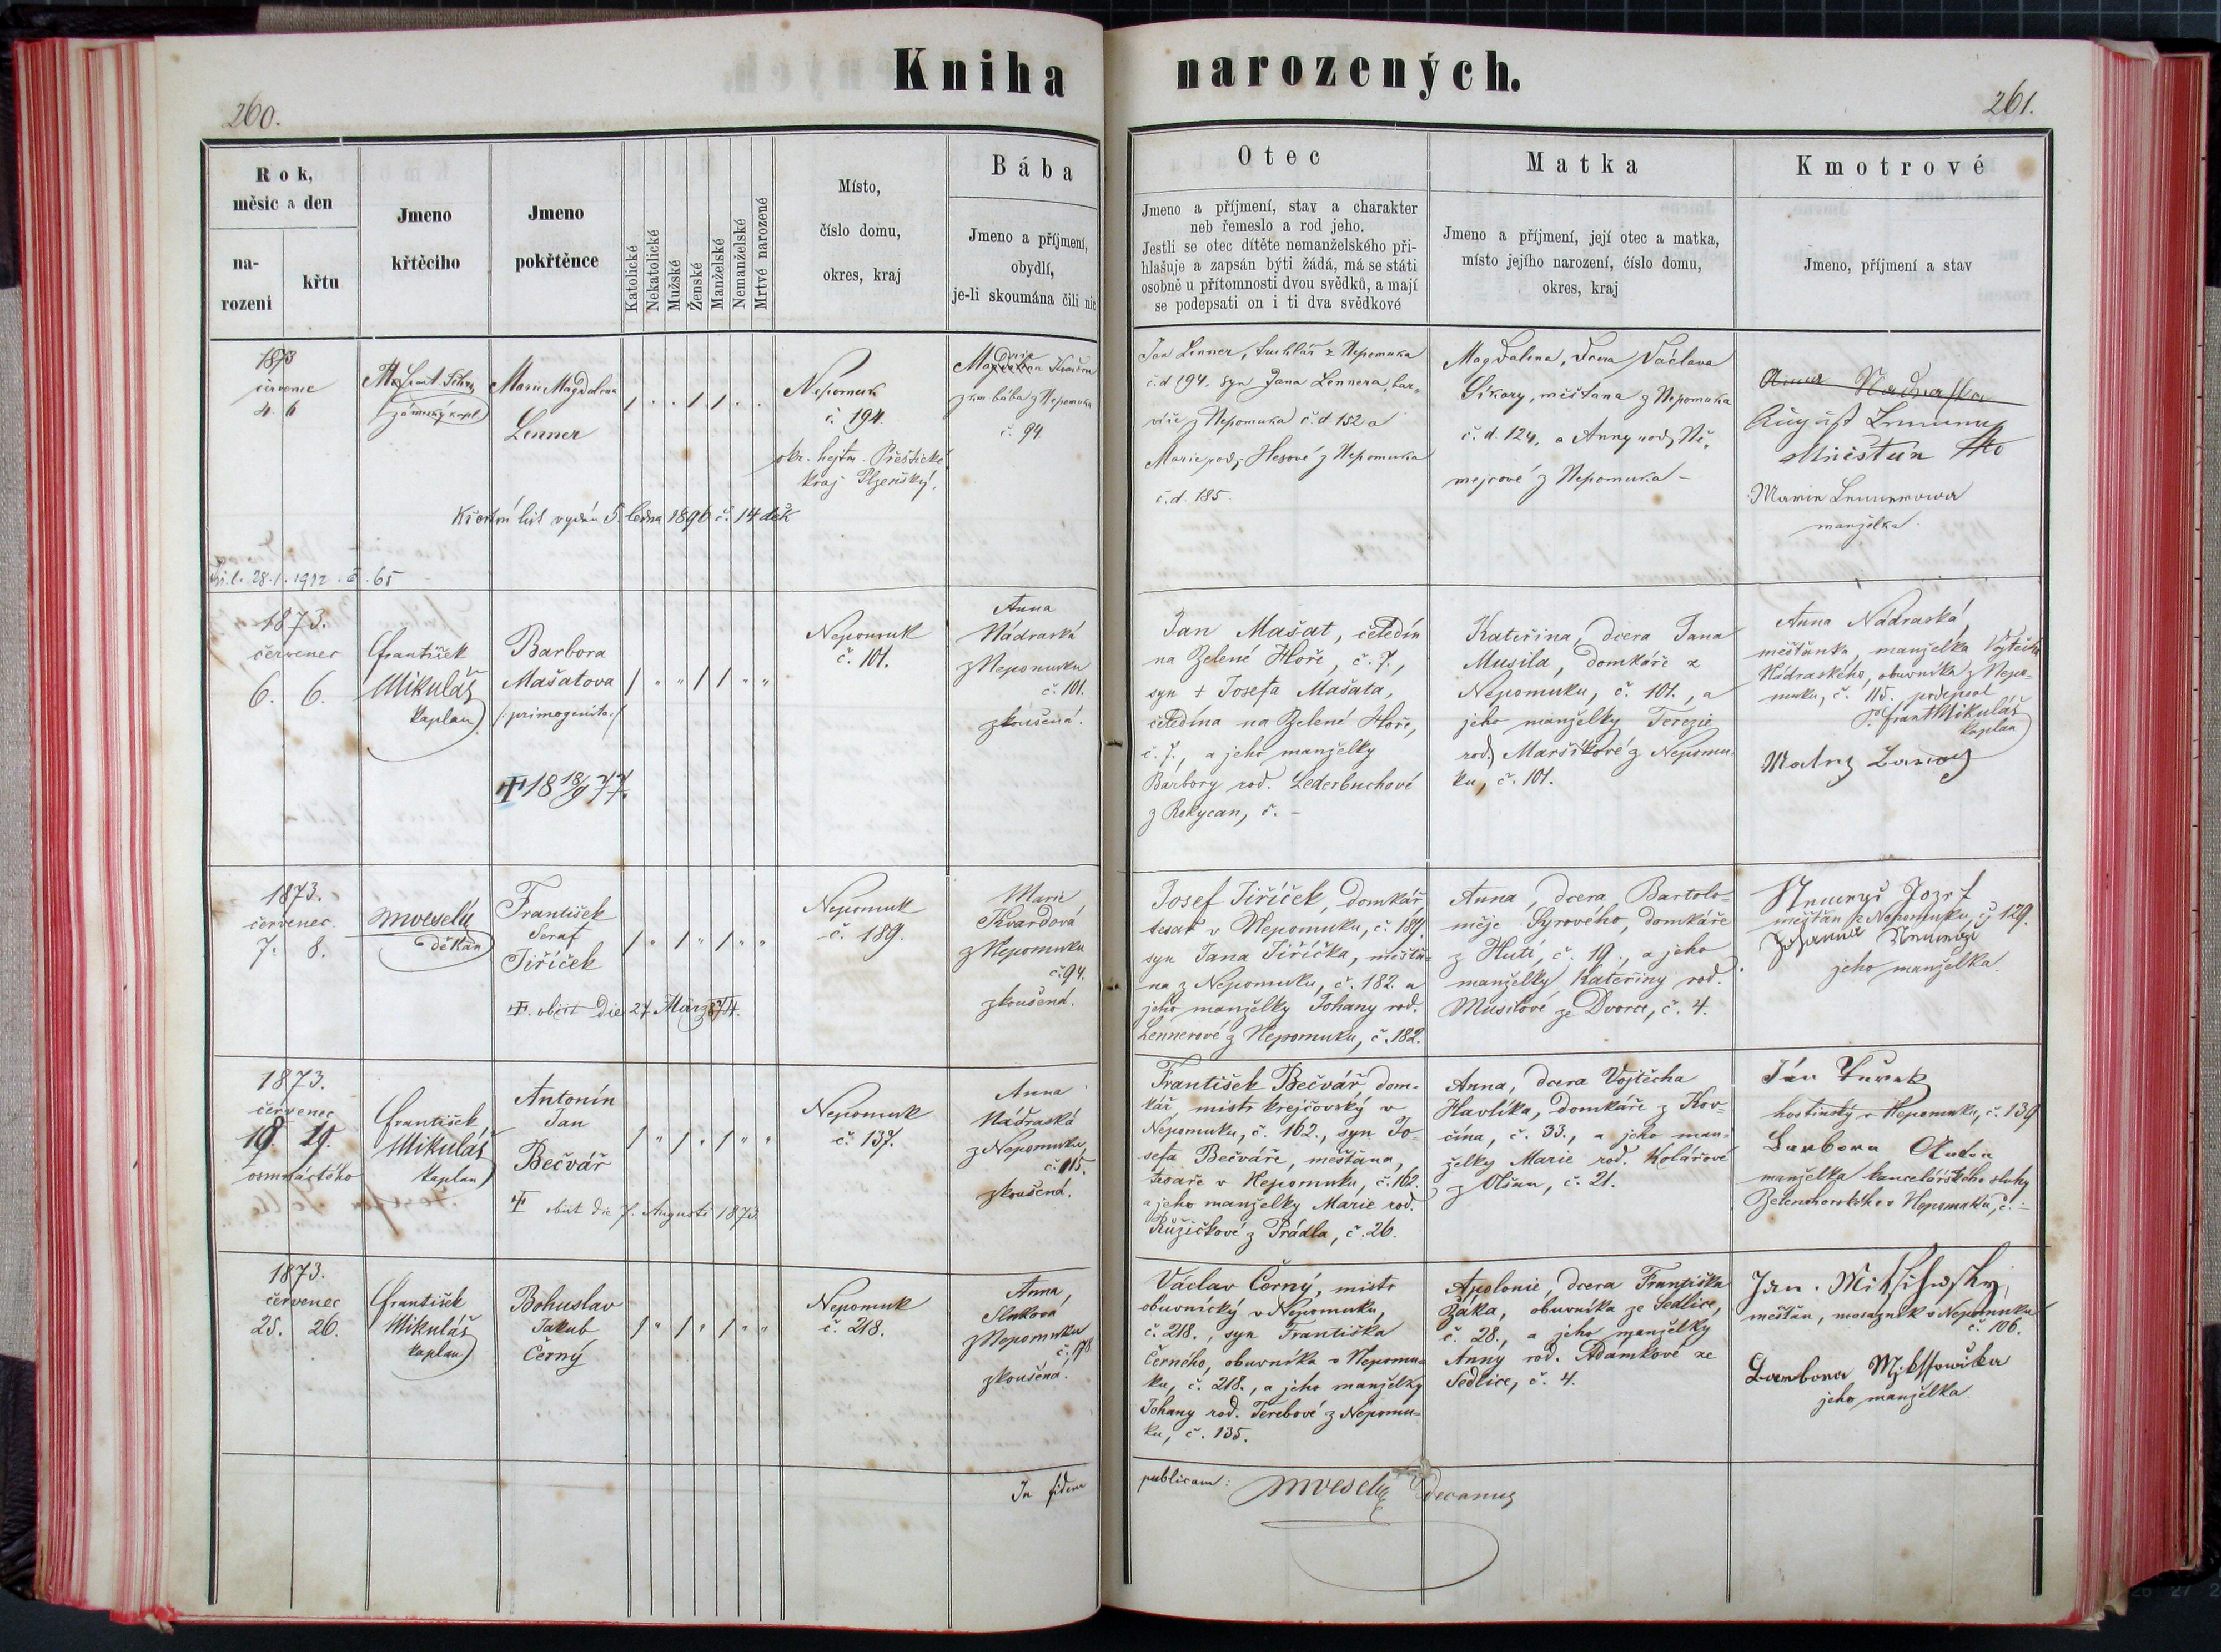 Kniha narozených.
260.
261.
Rok,
měsíc a den
na-
rozeni
křtu
Jmeno
křtěcího
Jmeno
pokřtěnce
Katolické
Nekatolické
Mužské
Ženské
Manželské
Nemanželské
Mrtvé narozené
Místo,
číslo domu,
okres, kraj
Bába
Jmeno a příjmení,
obydlí,
je-li skoumána čili nic
Otec
Jmeno a příjmení, stav a charakter
neb řemeslo a rod jeho.
Jestli se otec dítěte nemanželského při-
hlašuje a zapsán býti žádá, má se státi
osobně u přítomnosti dvou svědků, a mají
se podepsati on i ti dva svědkové
Matka
Jmeno a příjmení, její otec a matka,
místo jejího narození, číslo domu,
okres, kraj
Kmotrové
Jmeno, příjmení a stav
1873
červenec
4. 6
zámecký kapl
Marie Magdalena
Lenner
Nepomuk
č. 194.
okr. hejtm. Přeštické
kraj Plzeňský.
zk. bába z Nepomuka
č. 94.
Křestní list vydán 5. ledna 1896 č. 14 děk
Kř. l. 28.1.1912. č. 65
Jan Lenner, truhlář z Nepomuka
č.d 194. syn Jana Lennera, bar-
víře z Nepomuka č.d. 152 a
Marie rod. Hesové z Nepomuka
č.d. 185.
Magdalena, dcera Václava
Síkory, měšťana z Nepomuka
č.d. 124, a Anny rod. Ně-
mejcové z Nepomuka –
manželka.
1873.
červenec
6. 6.
František
Mikuláš
kaplan
Barbora
Mašatova
/: primogenita :/
18 18/9 77.
Nepomuk
č. 101.
Anna
Nádraská
z Nepomuku
č. 101.
zkoušená.
Jan Mašat, čeledín
na Zelené Hoře, č. 7.,
syn + Josefa Mašata,
čeledína na Zelené Hoře,
č. 7., a jeho manželky
Barbory rod. Lederbuchové
z Rokycan, č. –
Kateřina, dcera Jana
Musila, domkáře z
Nepomuku, č. 101., a
jeho manželky Terezie
rod. Maršíkové z Nepomu-
ku, č. 101.
Anna Nádraská,
měšťanka, manželka Vojtěcha
Nádraského, obuvníka z Nepo-
muku, č. 115. podepsal
P. Frant Mikuláš
kaplan
1873.
červenec.
7. 8.
MVeselý
děkan
František
Seraf
Jiříček
obiit die 27 März 874.
Nepomuk
č. 189.
Marie
Kvardová
z Nepomuku
č. 94.
zkoušená.
Josef Jiříček, domkář
tesař v Nepomuku, č. 189.
syn Jana Jiříčka, měšťa-
na z Nepomuku, č. 182. a
jeho manželky Johany rod.
Lennerové z Nepomuku, č. 182.
Anna, dcera Bartolo-
měje Syrového, domkáře
z Hutí, č. 19., a jeho
manželky Kateřiny rod.
Musilové ze Dvorce, č. 4.
Josef
měšťan z Nepomuku, č. 129.
Johanna
jeho manželka.
1873.
červenec
18. 19.
osmnáctého
František
Mikuláš
kaplan
Antonín
Jan
Bečvář
obiit die 7. Augusti 1873.
Nepomuk
č. 137.
Anna
Nádraská
z Nepomuku,
č. 115.
zkoušená.
František Bečvář dom-
kář, mistr krejčovský v
Nepomuku, č. 162., syn Jo-
sefa Bečváře, měšťana,
tvaře v Nepomuku, č. 162.
a jeho manželky Marie rod.
Růžičkové z Prádla, č. 26.
Anna, dcera Vojtěcha
Havlíka, domkáře z Kov-
čína, č. 33., a jeho man-
želky Marie rod. Kolářové
z Olšan, č. 21.
hostinský v Nepomuku, č. 139
Barbora
manželka kancelářského sluhy
Zelenohorského v Nepomuku, č. –
1873.
červenec
25. 26.
František
Mikuláš
kaplan
Bohuslav
Jakub
Černý
Nepomuk
č. 218.
Anna,
z Nepomuku
č. 178
zkoušená.
Václav Černý, mistr
obuvnický v Nepomuku,
č. 218., syn Františka
Černého, obuvníka v Nepomu-
ku, č. 218., a jeho manželky
Johany rod. Terebové z Nepomu-
ku, č. 135.
Apolonie, dcera Františka
Žáka, obuvníka ze Sedlice,
č. 28., a jeho manželky
Anny rod. Adamkové ze
Sedlice, č. 4.
měšťan, mosazník v Nepomuku
č. 106.
Barbora
jeho manželka.
In fidem
publicam: MVeselý decanus